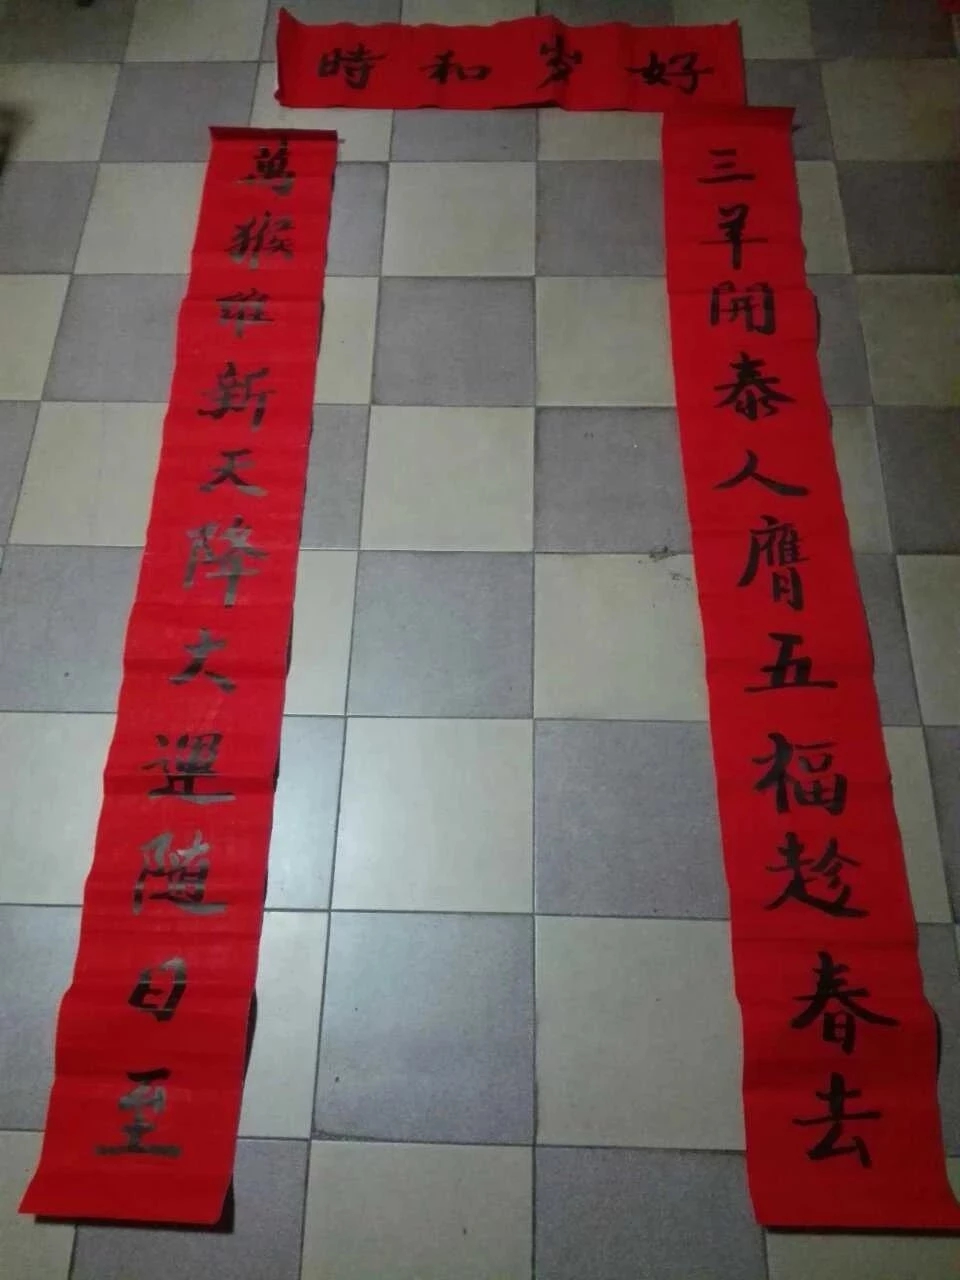 時和岁好
三羊開泰人膺五福趁春去
萬猴維新天降大運隨日至